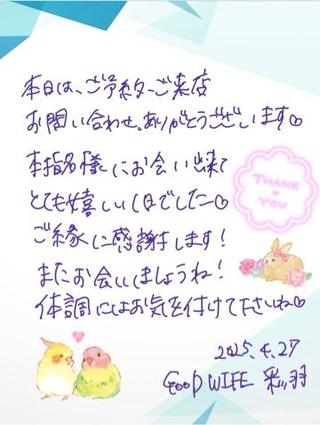 本日は、ご予約、ご来店
お問い合わせ。ありがとうございます♡
本指名様にお会い出来て
とても嬉しい1日でした♡
ご縁に感謝します！
またお会いしましょうね！
体調にはお気を付けて下さいね♡
THANK
YOU
2025.4.27
GOOD WIFE 彩羽